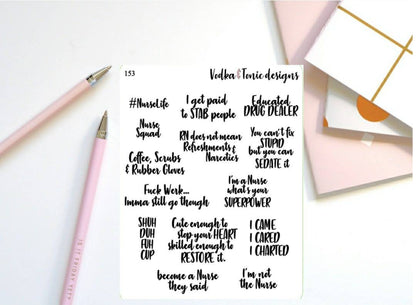 153
Vodka & Tonic designs
#NurseLife
I get paid
to STAB people
Educated
DRUG DEALER
Nurse
Squad
RN does not mean
Refreshments &
Narcotics
You can't fix
STUPID
but you can
SEDATE it
Coffee, Scrubs
& Rubber Gloves
I'm a Nurse
what's your
SUPERPOWER
Fuck Work...
Imma still go though
SHUH
DUH
FUH
CUP
Cute enough to
stop your HEART
skilled enough to
RESTORE it.
I CAME
I CARED
I CHARTED
become a Nurse
they said
I'm not
the Nurse